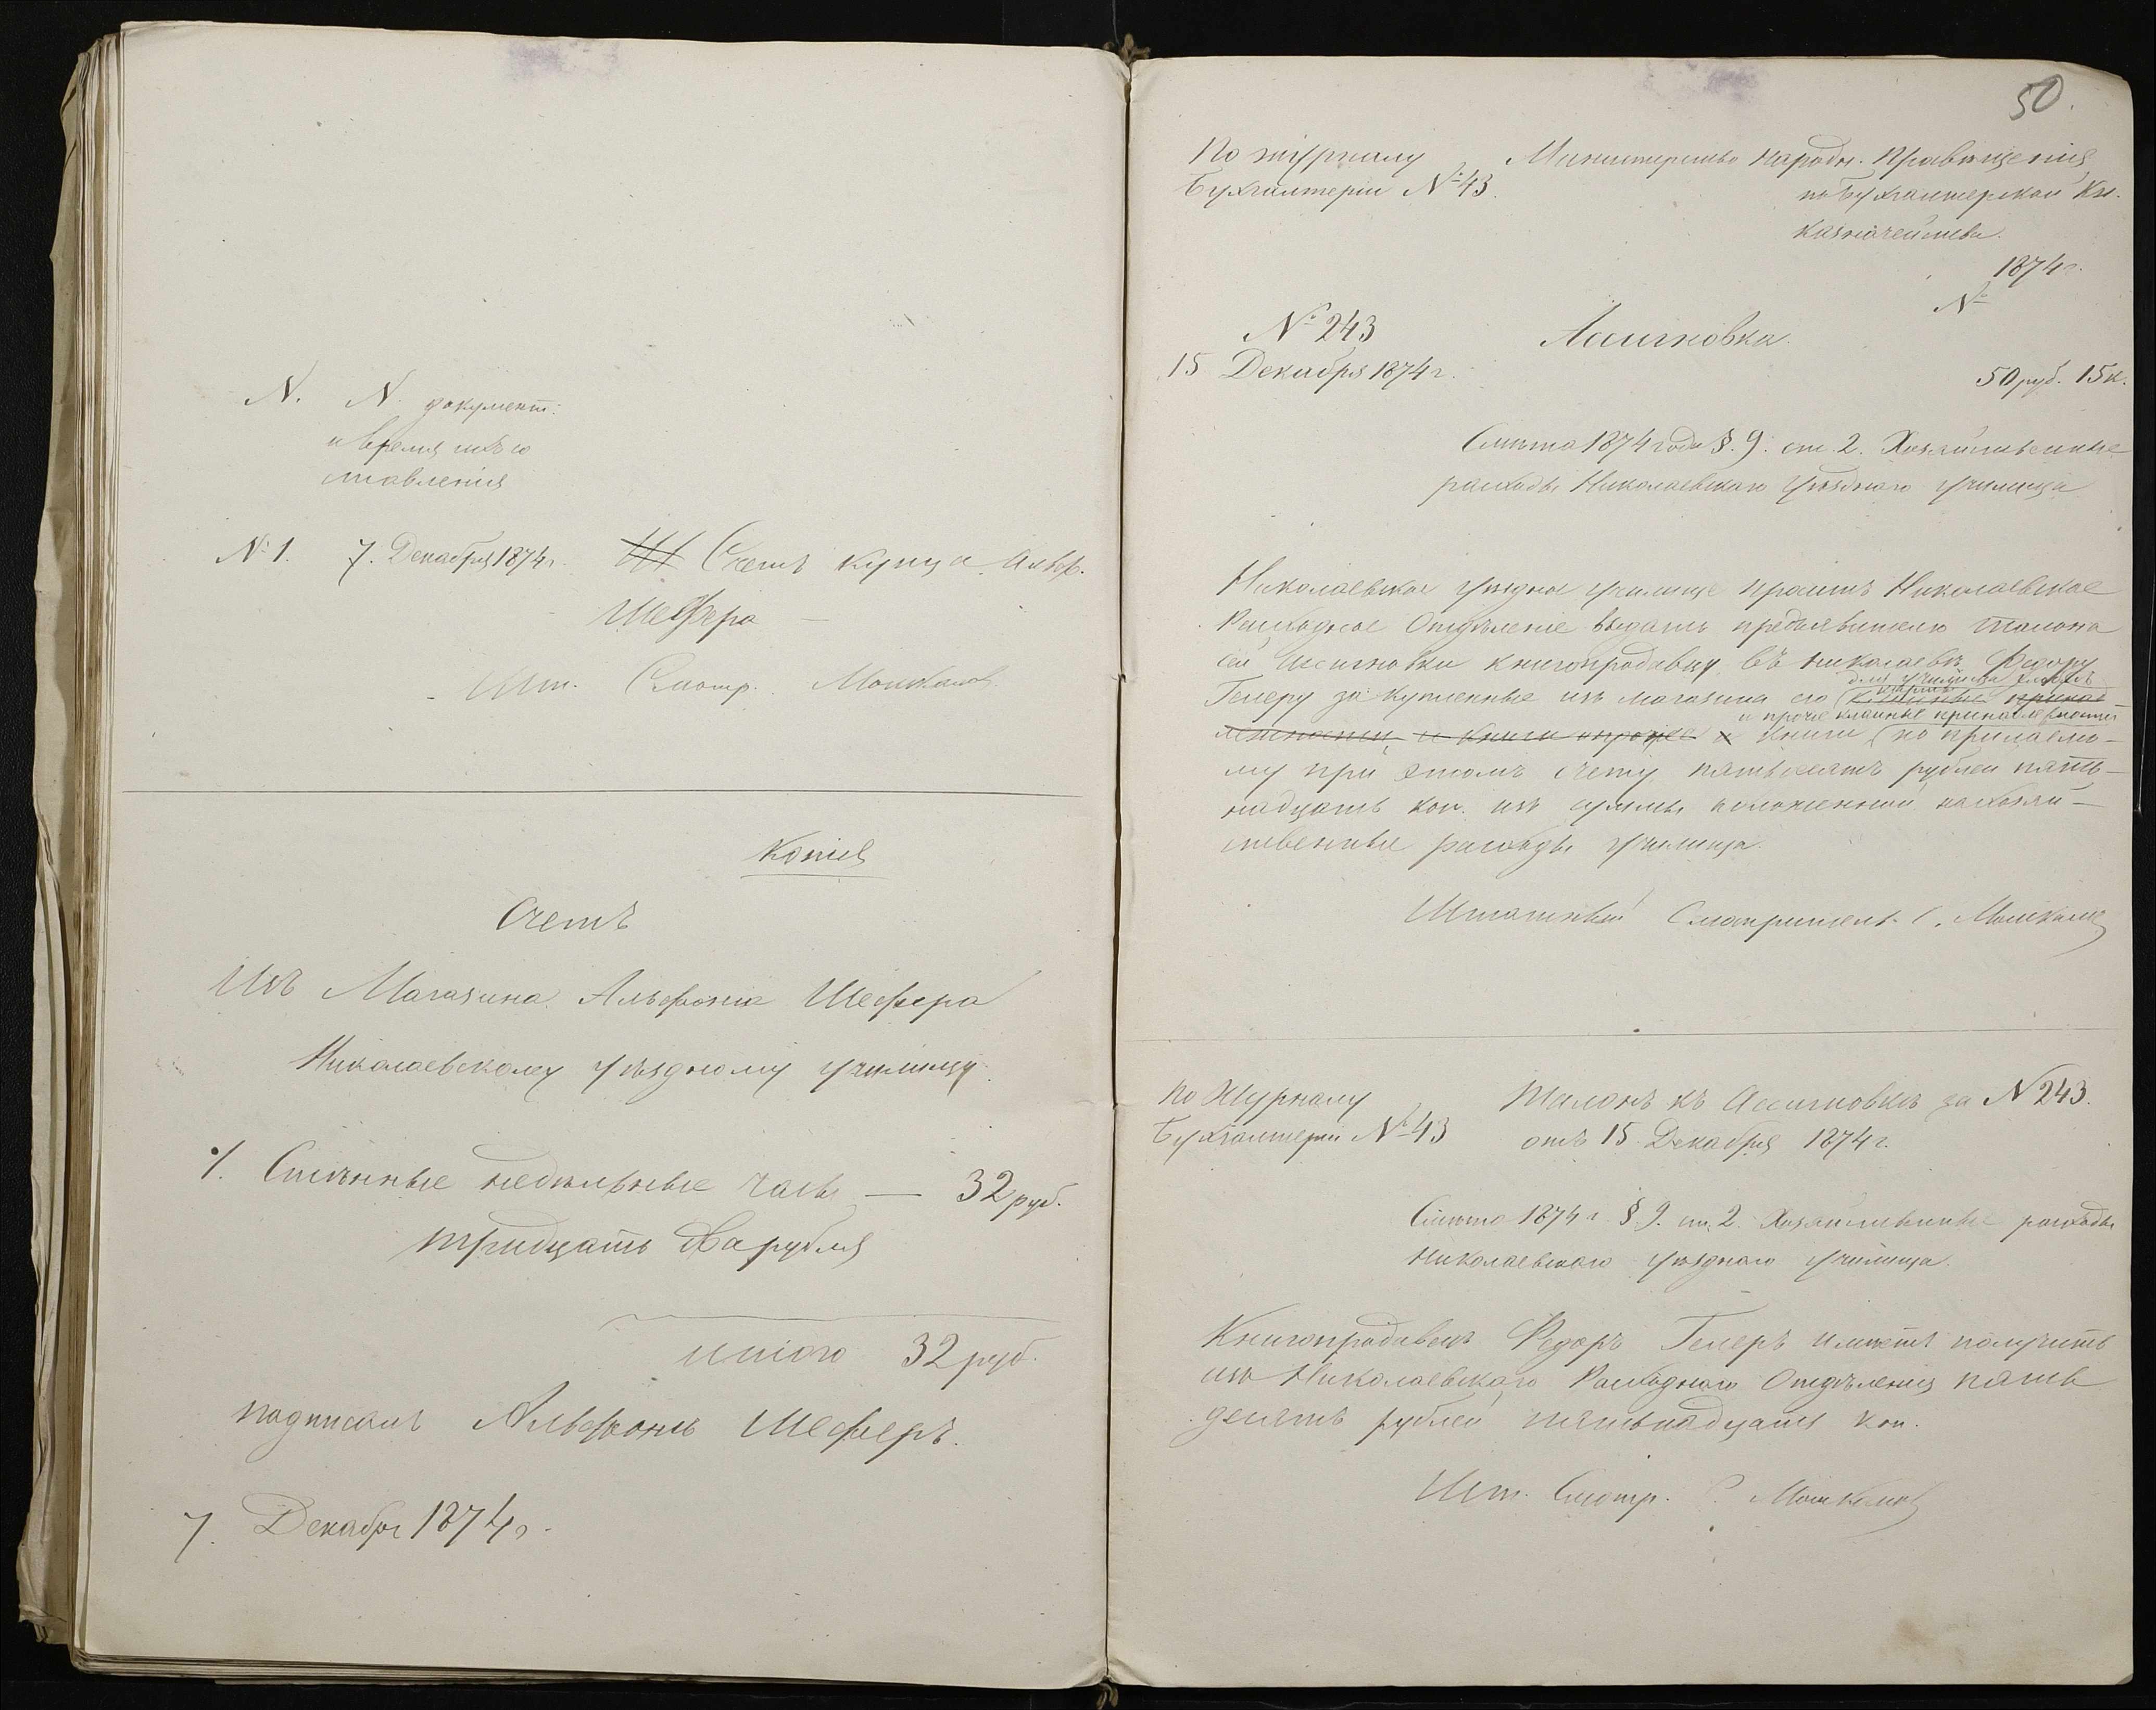 N. N. документ:
и время ихъ со
ставленія
№ 1. 7. Декабря 1874 г. Счетъ купца Альф.
Шефера
Шт. Смотр. Машкалов
Копія
Счетъ
Изъ Магазина Альфонса Шефера
Николаевскому уѣздному училищу.
1. Стѣнные недѣльные часы — 32 руб.
тридцать два рубля
итого 32 руб.
подписалъ Альфонсъ Шеферъ.
7. Декабря 1874 г.
50.
По журналу
Бухгалтеріи № 43.
Министерство Народн. Просвѣщенія
по бухгалтерской Кн.
казначейства.
1874 г.
№
№ 243
15 Декабря 1874 г.
Ассигновка.
50 руб. 15 к.
Смѣта 1874 года §. 9. ст. 2. Хозяйственные
расходы Николаевскаго уѣзднаго училища
Николаевское уѣздное училище проситъ Николаевское
Расходное Отдѣленіе выдать предъявителю талона
сей Ассигновки книгопродавцу въ Николаевѣ Федору
для училища
Гейеру за купленные изъ магазина его
и прочіе классные принадлежности
лежности, и книги и прочее и книги (по прилагемо-
му при этомъ счету пятьдесятъ рублей пять-
надцать коп. изъ суммы положенной на хозяй-
ственные расходы училища.
Штатный Смотритель С. Машкалов
По Журналу
Бухгалтеріи № 43
Талонъ къ Ассигновкѣ за N 243.
отъ 15 Декабря 1874 г.
Смѣта 1874 г. §. 9. ст. 2. Хозяйственные расходы
Николаевскаго уѣзднаго училища.
Книгопродавецъ Федоръ Гейеръ имѣетъ получить
изъ Николаевскаго Расходнаго Отдѣленія пять
десятъ рублей пятьнадцать коп.
Шт. Смотр. С. Машкалов